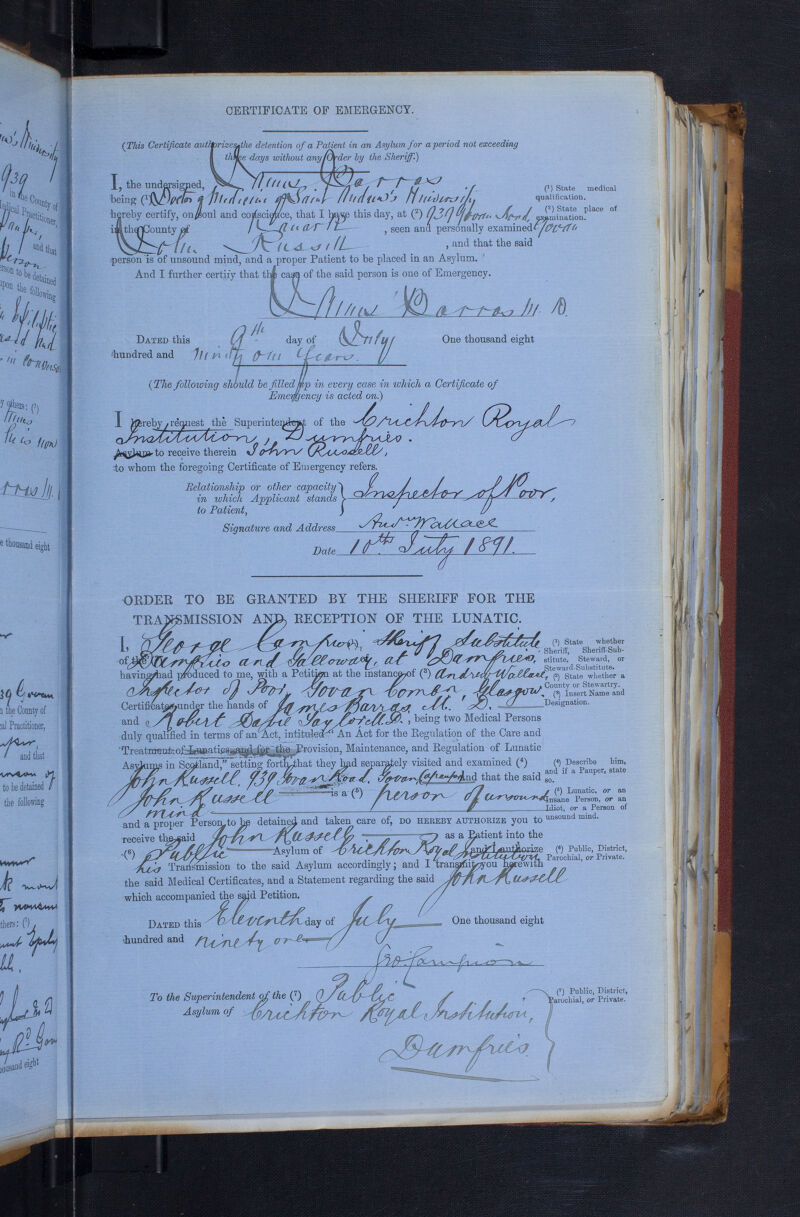 CERTIFICATE OF EMERGENCY.
(This Certificate authorizes the detention of a Patient in an Asylum for a period not exceeding
three days without any Order by the Sheriff.)
I, the undersigned, James Barras
being (¹) Doctor of Medicine of Saint Andrew's University
(¹) State medical
qualification.
hereby certify, on soul and conscience, that I have this day, at (²) 939 Govan Road,
(²) State place of
examination.
in the County of Lanark, seen and personally examined Govan
John Russell, and that the said
person is of unsound mind, and a proper Patient to be placed in an Asylum.
And I further certify that the case of the said person is one of Emergency.
James Barras M. D.
DATED this 9th day of July One thousand eight
hundred and ninety one years.
(The following should be filled up in every case in which a Certificate of
Emergency is acted on.)
I hereby request the Superintendent of the Crichton Royal
Institution, Dumfries.
Asylum to receive therein John Russell,
to whom the foregoing Certificate of Emergency refers.
Relationship or other capacity
in which Applicant stands
to Patient,
Inspector of Poor,
Signature and Address Andw Wallace
Date 10th July 1891.
ORDER TO BE GRANTED BY THE SHERIFF FOR THE
TRANSMISSION AND RECEPTION OF THE LUNATIC.
I, George Campion, Sheriff Substitute
(¹) State whether
Sheriff, Sheriff-Sub-
stitute, Steward, or
Steward-Substitute.
of Dumfries and Galloway, at Dumfries,
having had produced to me, with a Petition at the instance of (²) Andrew Wallace,
(²) State whether a
County or Stewartry.
Inspector of Poor, Govan Combn, Glasgow.
(³) Insert Name and
Designation.
Certificates under the hands of James Barras, M. D.
and Robert David Taylor, being two Medical Persons
duly qualified in terms of an Act, intituled "An Act for the Regulation of the Care and
Treatment of Lunatics, and for the Provision, Maintenance, and Regulation of Lunatic
Asylums in Scotland," setting forth that they had separately visited and examined (⁴)
(⁴) Describe him,
and if a Pauper, state
so.
John Russell, 939 Govan Road, Govan (a pauper) and that the said
John Russell is a (⁵) person of unsound
(⁵) Lunatic, or an
Insane Person, or an
Idiot, or a Person of
unsound mind.
mind
and a proper Person to be detained and taken care of, DO HEREBY AUTHORIZE you to
receive the said John Russell as a Patient into the
(⁶) Public Asylum of Crichton Royal Institution and I authorize
(⁶) Public, District,
Parochial, or Private.
his Transmission to the said Asylum accordingly; and I transmit you herewith
the said Medical Certificates, and a Statement regarding the said John Russell
which accompanied the said Petition.
DATED this Eleventh day of July One thousand eight
hundred and ninety one
Geo Campion
To the Superintendent of the (⁷) Public
(⁷) Public, District,
Parochial, or Private.
Asylum of Crichton Royal Institution,
Dumfries.